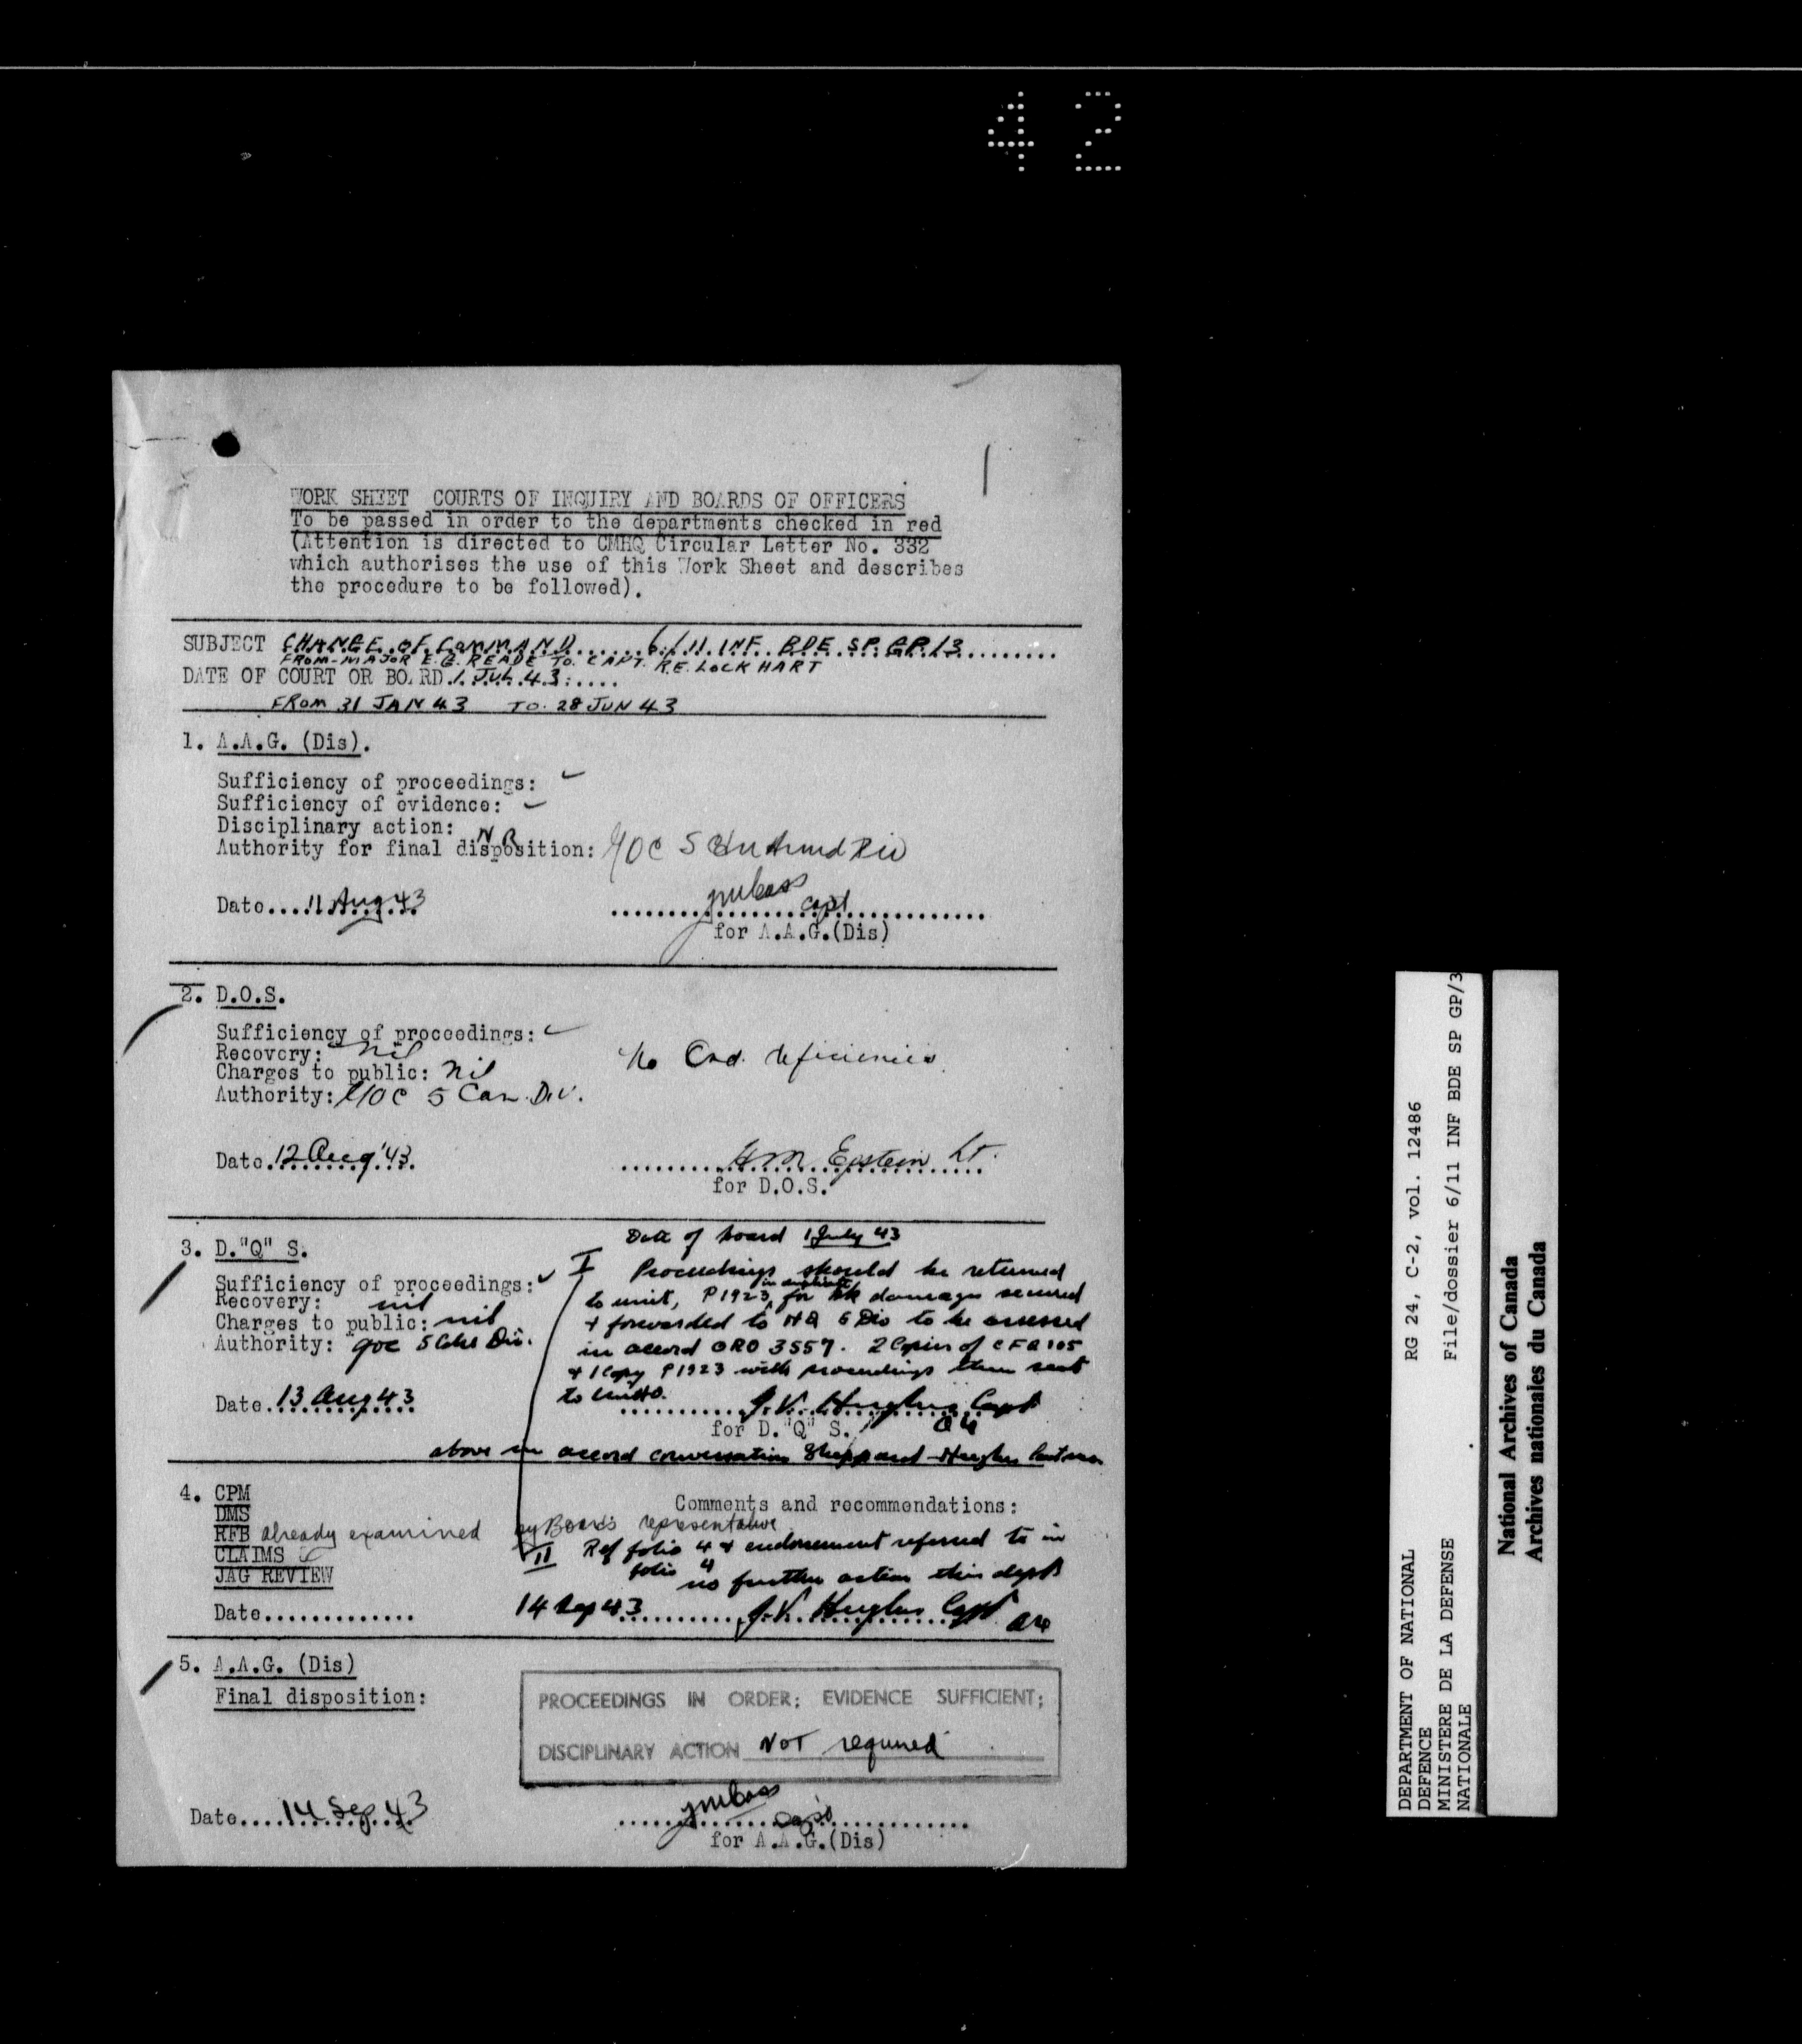 42
WORK SHEET COURTS OF INQUIRY AND BOARDS OF OFFICERS
To be passed in order to the departments checked in red
(Attention is directed to CMHQ Circular Letter No. 332
which authorises the use of this Work Sheet and describes
the procedure to be followed).
SUBJECT CHANGE OF COMMAND...... 6/11 INF. BDE SP. GP/3.........
FROM - MAJOR E.G. READE TO CAPT. R.E. LOCKHART
DATE OF COURT OR BOARD 1 JUL 43.....
FROM 31 JAN 43 TO 28 JUN 43
1. A.A.G. (Dis).
Sufficiency of proceedings: ✓
Sufficiency of evidence: ✓
Disciplinary action: NR
Authority for final disposition: GOC 5 Cdn Armd Div
Date....11 Aug 43
Capt
for A.A.G.(Dis)
2. D.O.S.
Sufficiency of proceedings: ✓
Recovery: nil
Charges to public: nil
No Ord. deficiencies.
Authority: GOC 5 Can. Div.
Date.12 Aug '43.
Epstein Lt.
for D.O.S.
Date of board 1 July 43
3. D."Q" S.
I Proceedings should be returned
Sufficiency of proceedings: ✓
in
to unit, P1923 for damages secured
Recovery: nil
Charges to public: nil
+ forwarded to HQ 5 Div to be assessed
Authority: GOC 5 Div.
in accord CRO 3557. 2 Copies of CFA 105
+ 1 Copy P1923 with proceedings then sent
to
Date.13 Aug 43
J.V. Hughes Capt
for D."Q" S.
above in accord conversation Sheppard - Hughes
4. CPM
DMS
Comments and recommendations:
RFB already examined by Board's representative
CLAIMS
II Ref folio 4 & endorsement referred to in
folio 4
JAG REVIEW
no further action this dept
Date.............
14 Sep 43.......... J.V. Hughes Capt
5. A.A.G. (Dis)
Final disposition:
PROCEEDINGS IN ORDER; EVIDENCE SUFFICIENT;
DISCIPLINARY ACTION NOT required
Date....14 Sep 43
Capt
for A.A.G.(Dis)
DEPARTMENT OF NATIONAL
DEFENCE
MINISTERE DE LA DEFENSE
NATIONALE
RG 24, C-2, vol. 12486
File/dossier 6/11 INF BDE SP GP/3
National Archives of Canada
Archives nationales du Canada